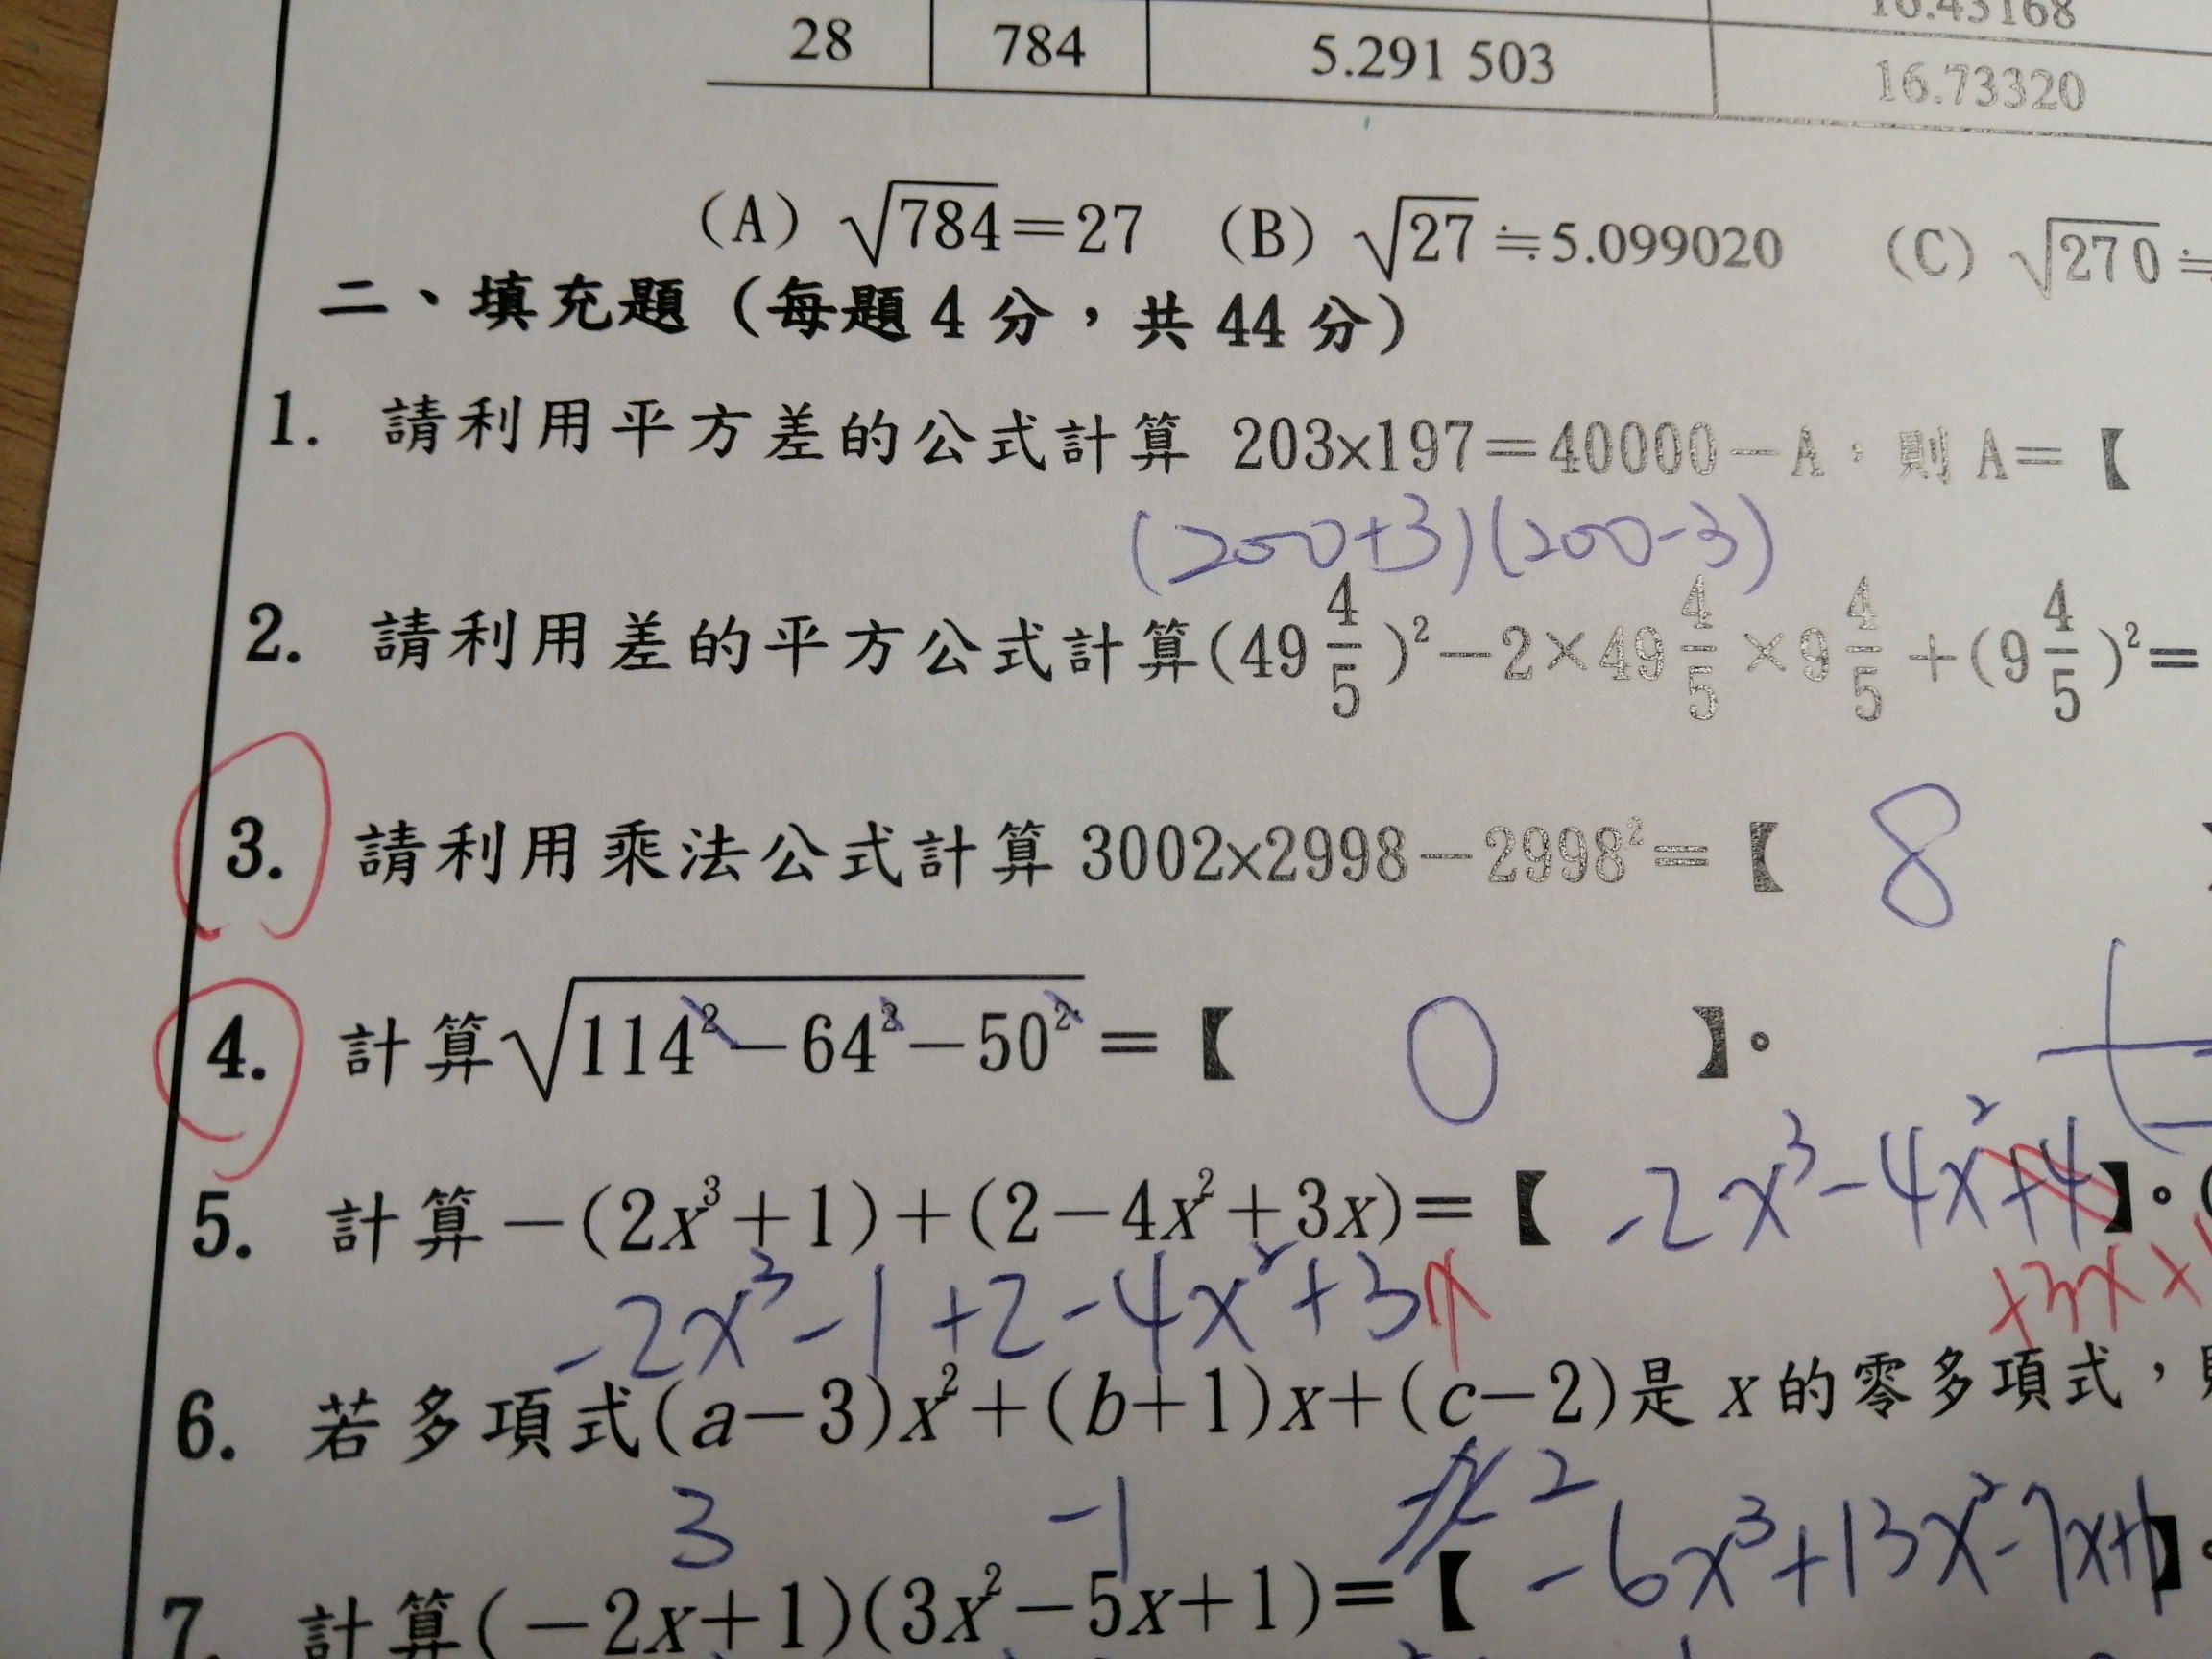 16.43168
28 784 5.291 503 16.73320
(A) √784=27 (B) √27≒5.099020 (C) √270≒
二、填充題(每題4分,共44分)
1. 請利用平方差的公式計算 203×197=40000-A,則 A=【
(200+3)(200-3)
2. 請利用差的平方公式計算(49 4/5)²-2×49 4/5×9 4/5+(9 4/5)²=
3. 請利用乘法公式計算 3002×2998-2998²=【 8 】
4. 計算√(114²-64²-50²)=【 0 】。
5. 計算-(2x³+1)+(2-4x²+3x)=【 -2x³-4x²+4】。(
+3x+
-2x³-1+2-4x²+3x
6. 若多項式(a-3)x²+(b+1)x+(c-2)是 x 的零多項式,
3 -1 2
7. 計算(-2x+1)(3x²-5x+1)=【 -6x³+13x²-7x+1】。